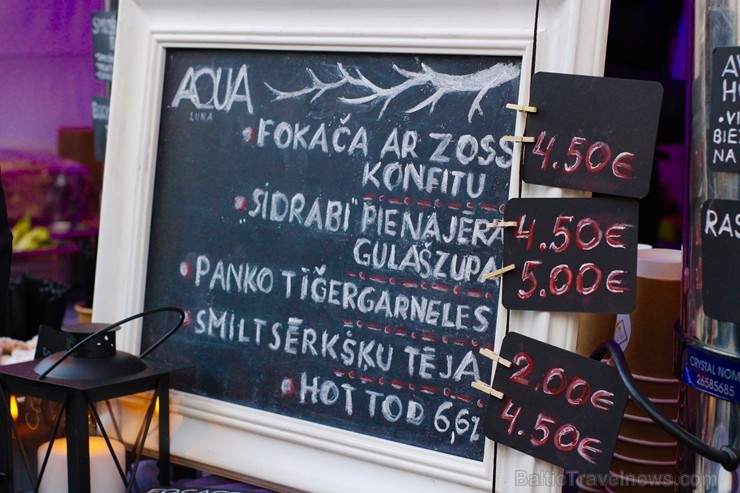 AQUA
LUNA
FOKAČA AR ZOSS
KONFITU
4.50€
"SIDRABI" PIENAJĒRA
GULAŠZUPA
4.50€
PANKO TĪĢERGARNELES
5.00€
SMILTSĒRKŠĶU TĒJA
2.00€
HOTTOD 6,6%
4.50€
RAS
CRYSTAL NOM
26585685
BalticTravelnews.com